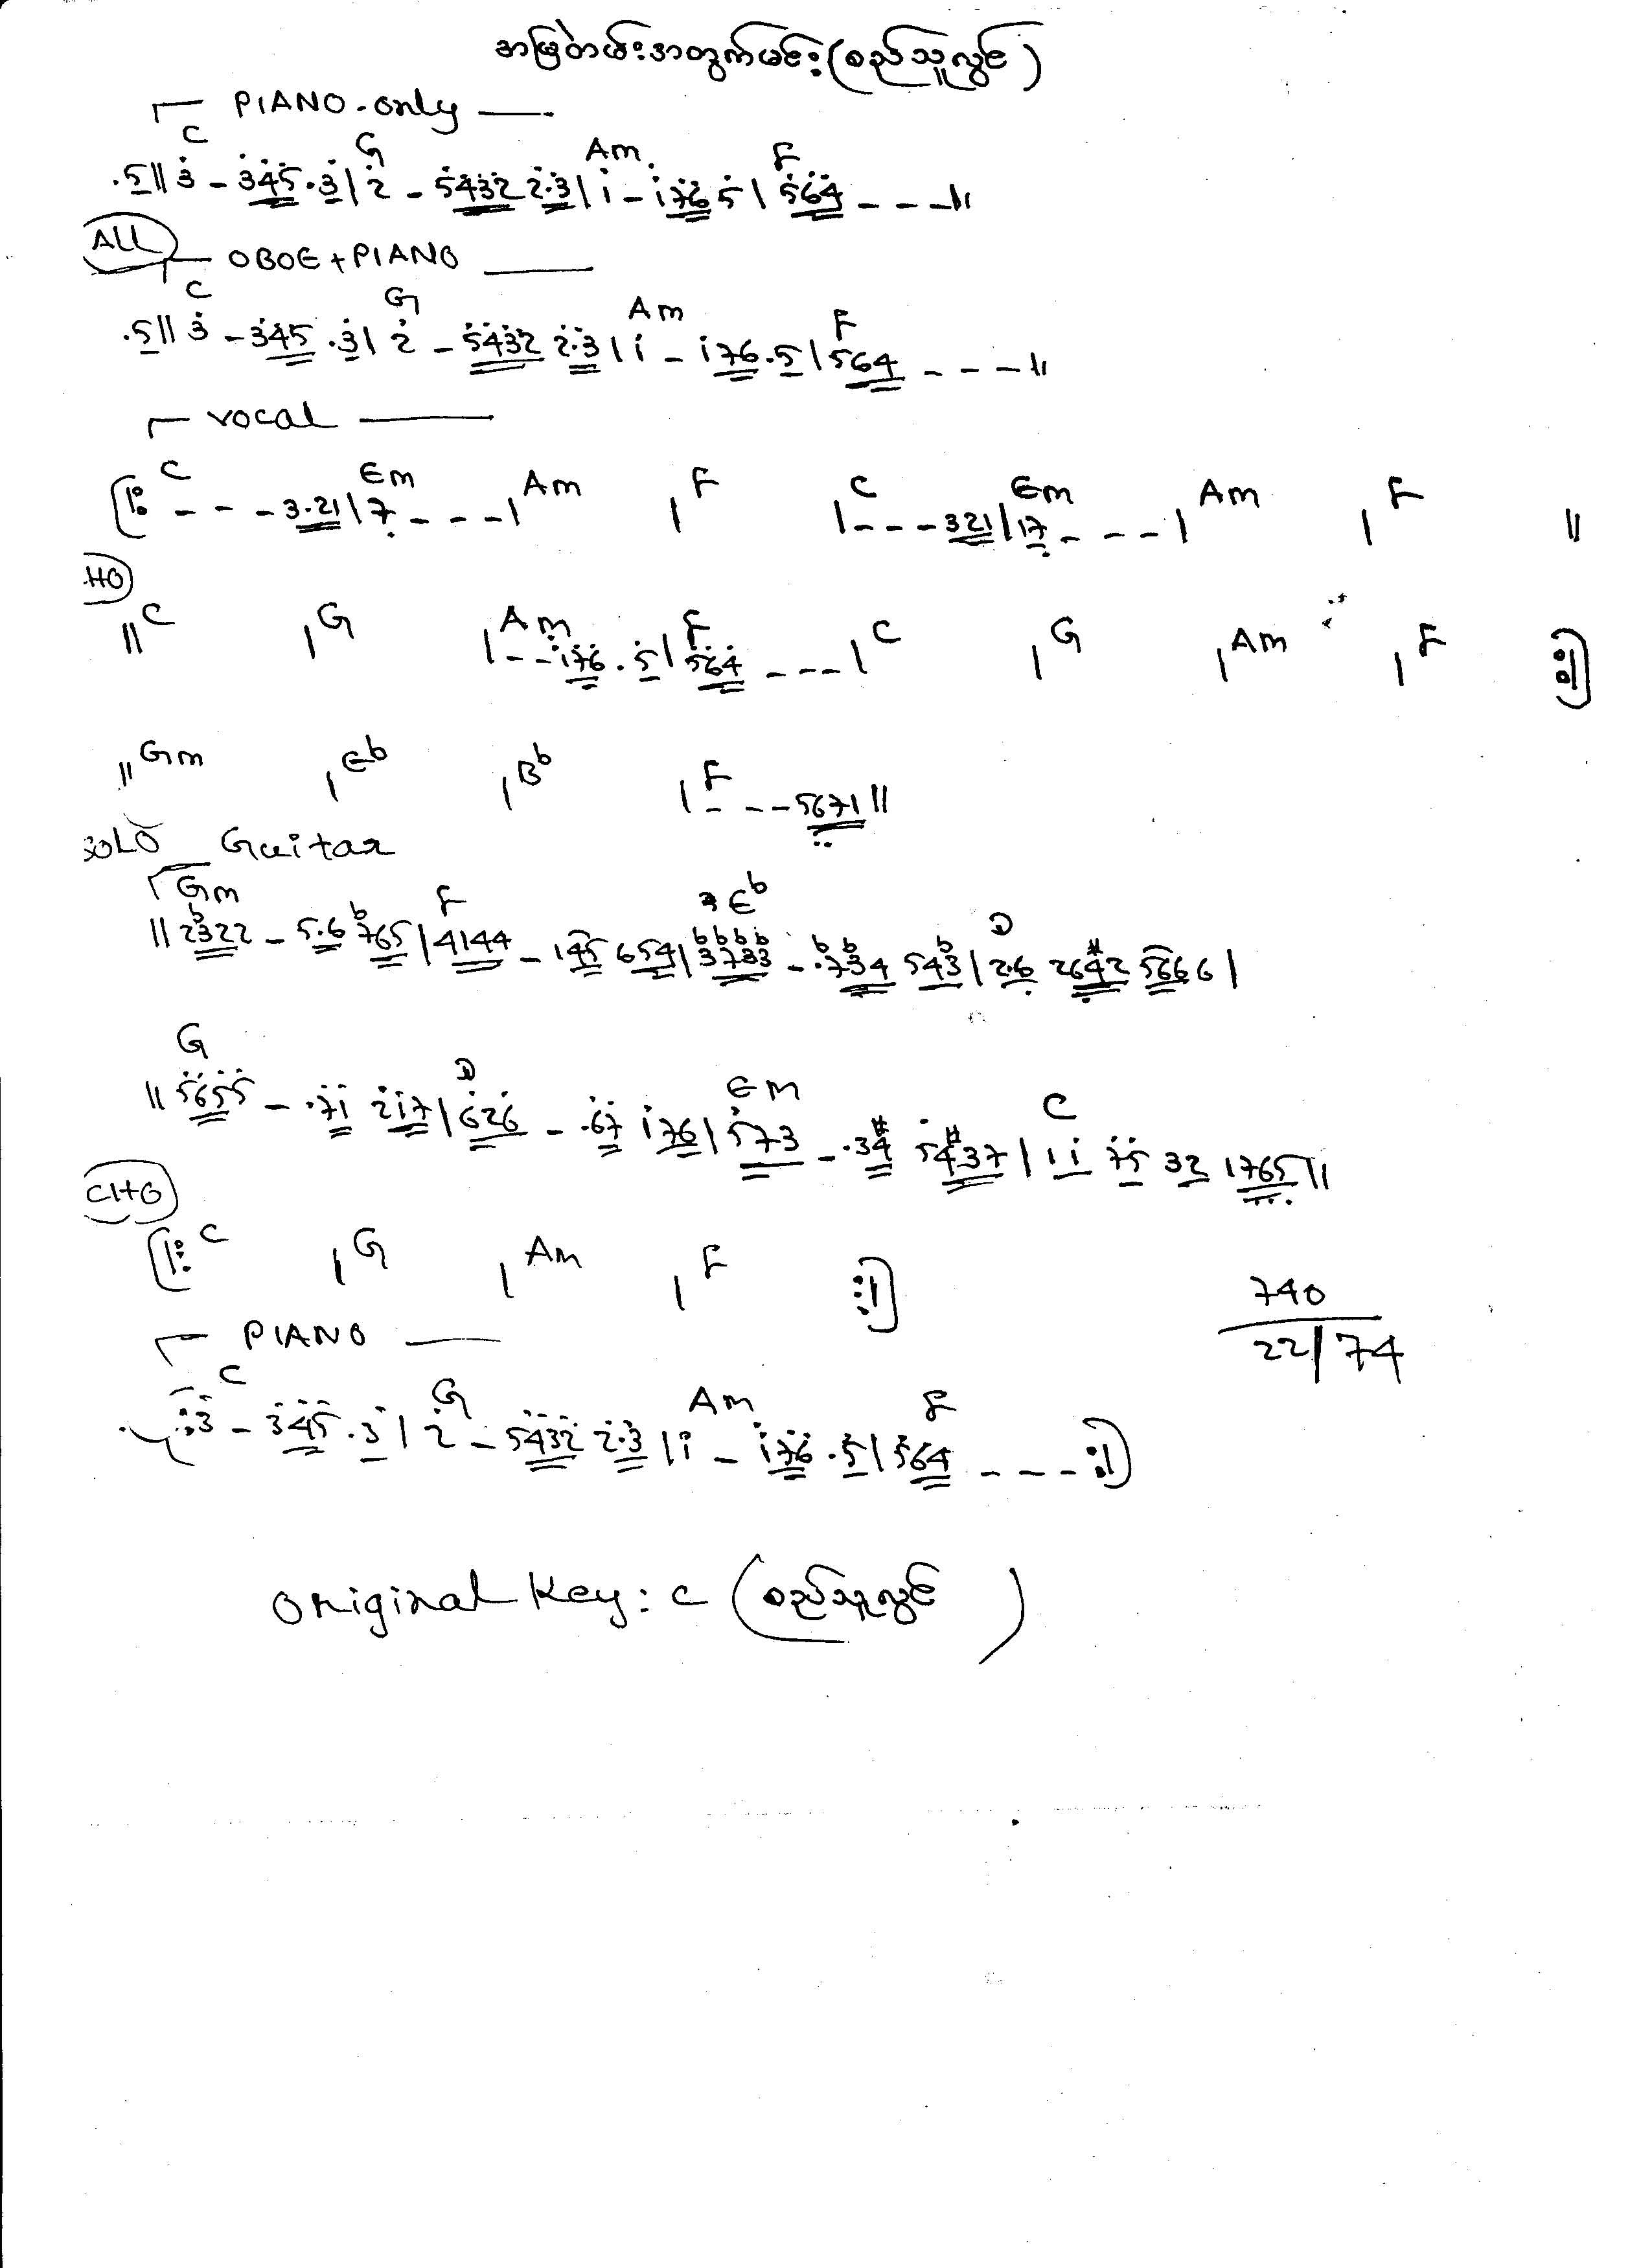 အမြဲတမ်းအတွက်မင်း(စည်သူလွင်)
PIANO-only
C G Am F
.5||3 - 345.3|2 - 5432 2.3|1 - 176 5|564 - - - ||
ALL
OBOE+PIANO
C G Am F
.5||3 - 345 .3|2 - 5432 2.3|1 - 176.5|564 - - - ||
vocal
C Em Am F C Em Am F
[|: - - - 3.21|7 - - - | | |- - - 321|17 - - - | | ||
HO
C G Am F C G Am F
|| | |- - 176.5|564 - - - | | | | :|]
||Gm |Eb |Bb |F - - - 5671||
SOLO Guitar
Gm F Eb D
||2b322 - 5.6 b765|4144 - 145 654|b3b7b3b3 - .b7b34 54b3|2.6 26#42 5666|
G D Em C
||5655 - .71 217|626 - .67 176|573 - .3#4 5#437|11 75 32 1765||
CHO
[|:C |G |Am |F :|]
740
PIANO
22/74
C G Am F
3 - 345 .3|2 - 5432 2.3|1 - 176 .5|564 - - - :|]
Original Key: C (စည်သူလွင်)